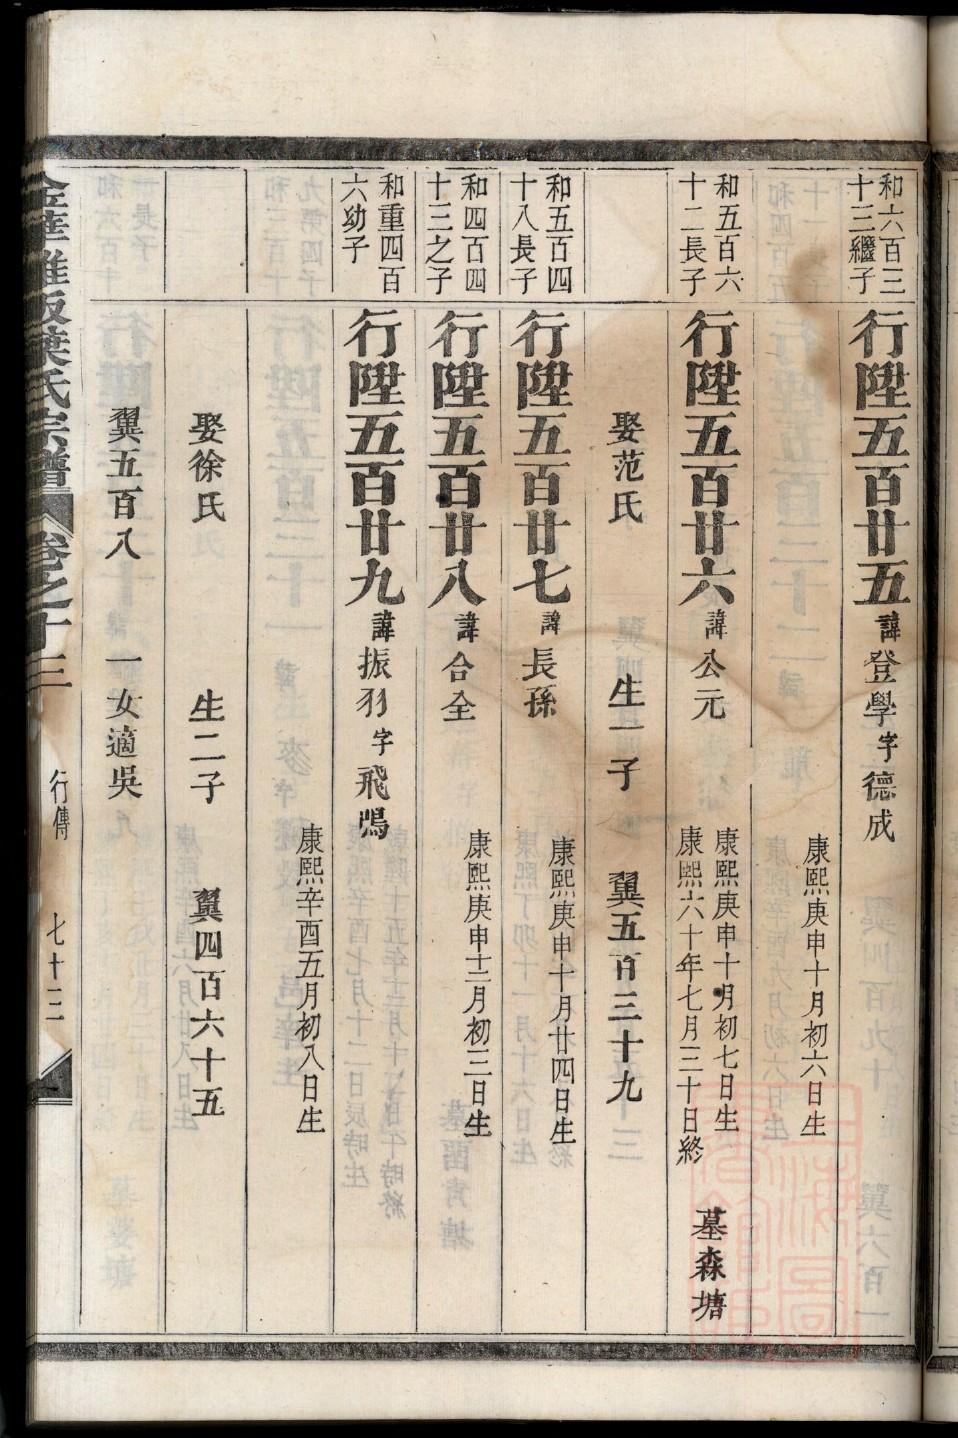 和六百三
十三繼子
行陞五百廿五 諱登學字德成 康熙庚申十月初六日生
和五百六
十二長子
行陞五百廿六 諱公元 康熙庚申十月初七日生
康熙六十年七月三十日終 墓森塘
娶范氏 生一子 翼五百三十九
和五百四
十八長子
行陞五百廿七 諱長孫 康熙庚申十月廿四日生
和四百四
十三之子
行陞五百廿八 諱合全 康熙庚申十二月初三日生
和重四百
六幼子
行陞五百廿九 諱振羽字飛鳴 康熙辛酉五月初八日生
娶徐氏 生二子 翼四百六十五
翼五百八 一女適吳
葉氏宗譜 卷之十三 行傳 七十三